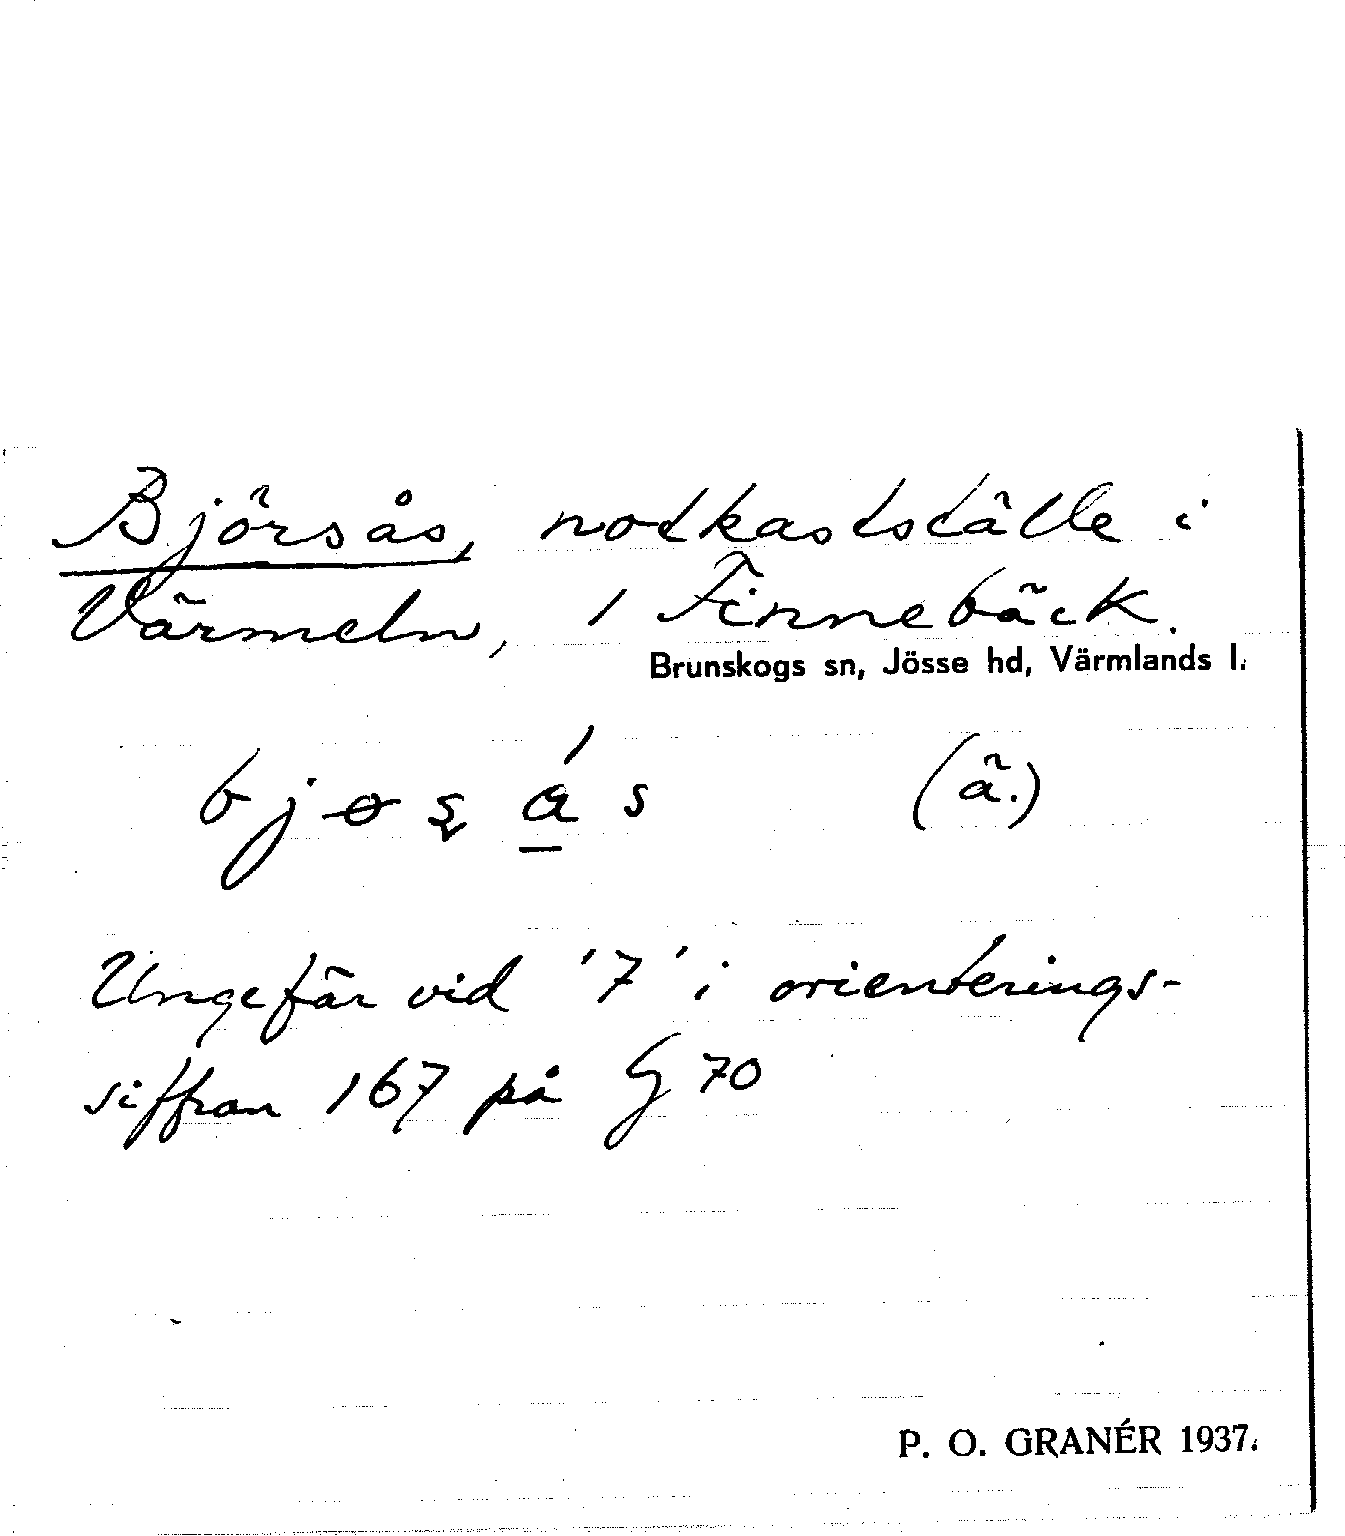 Björsås, notkastställe i
Värmeln, 1 Finnebäck.
Brunskogs sn, Jösse hd, Värmlands l.
(ä.)
Ungefär vid '7' i orienterings-
siffran 167 på G 70
P. O. GRANÉR 1937.